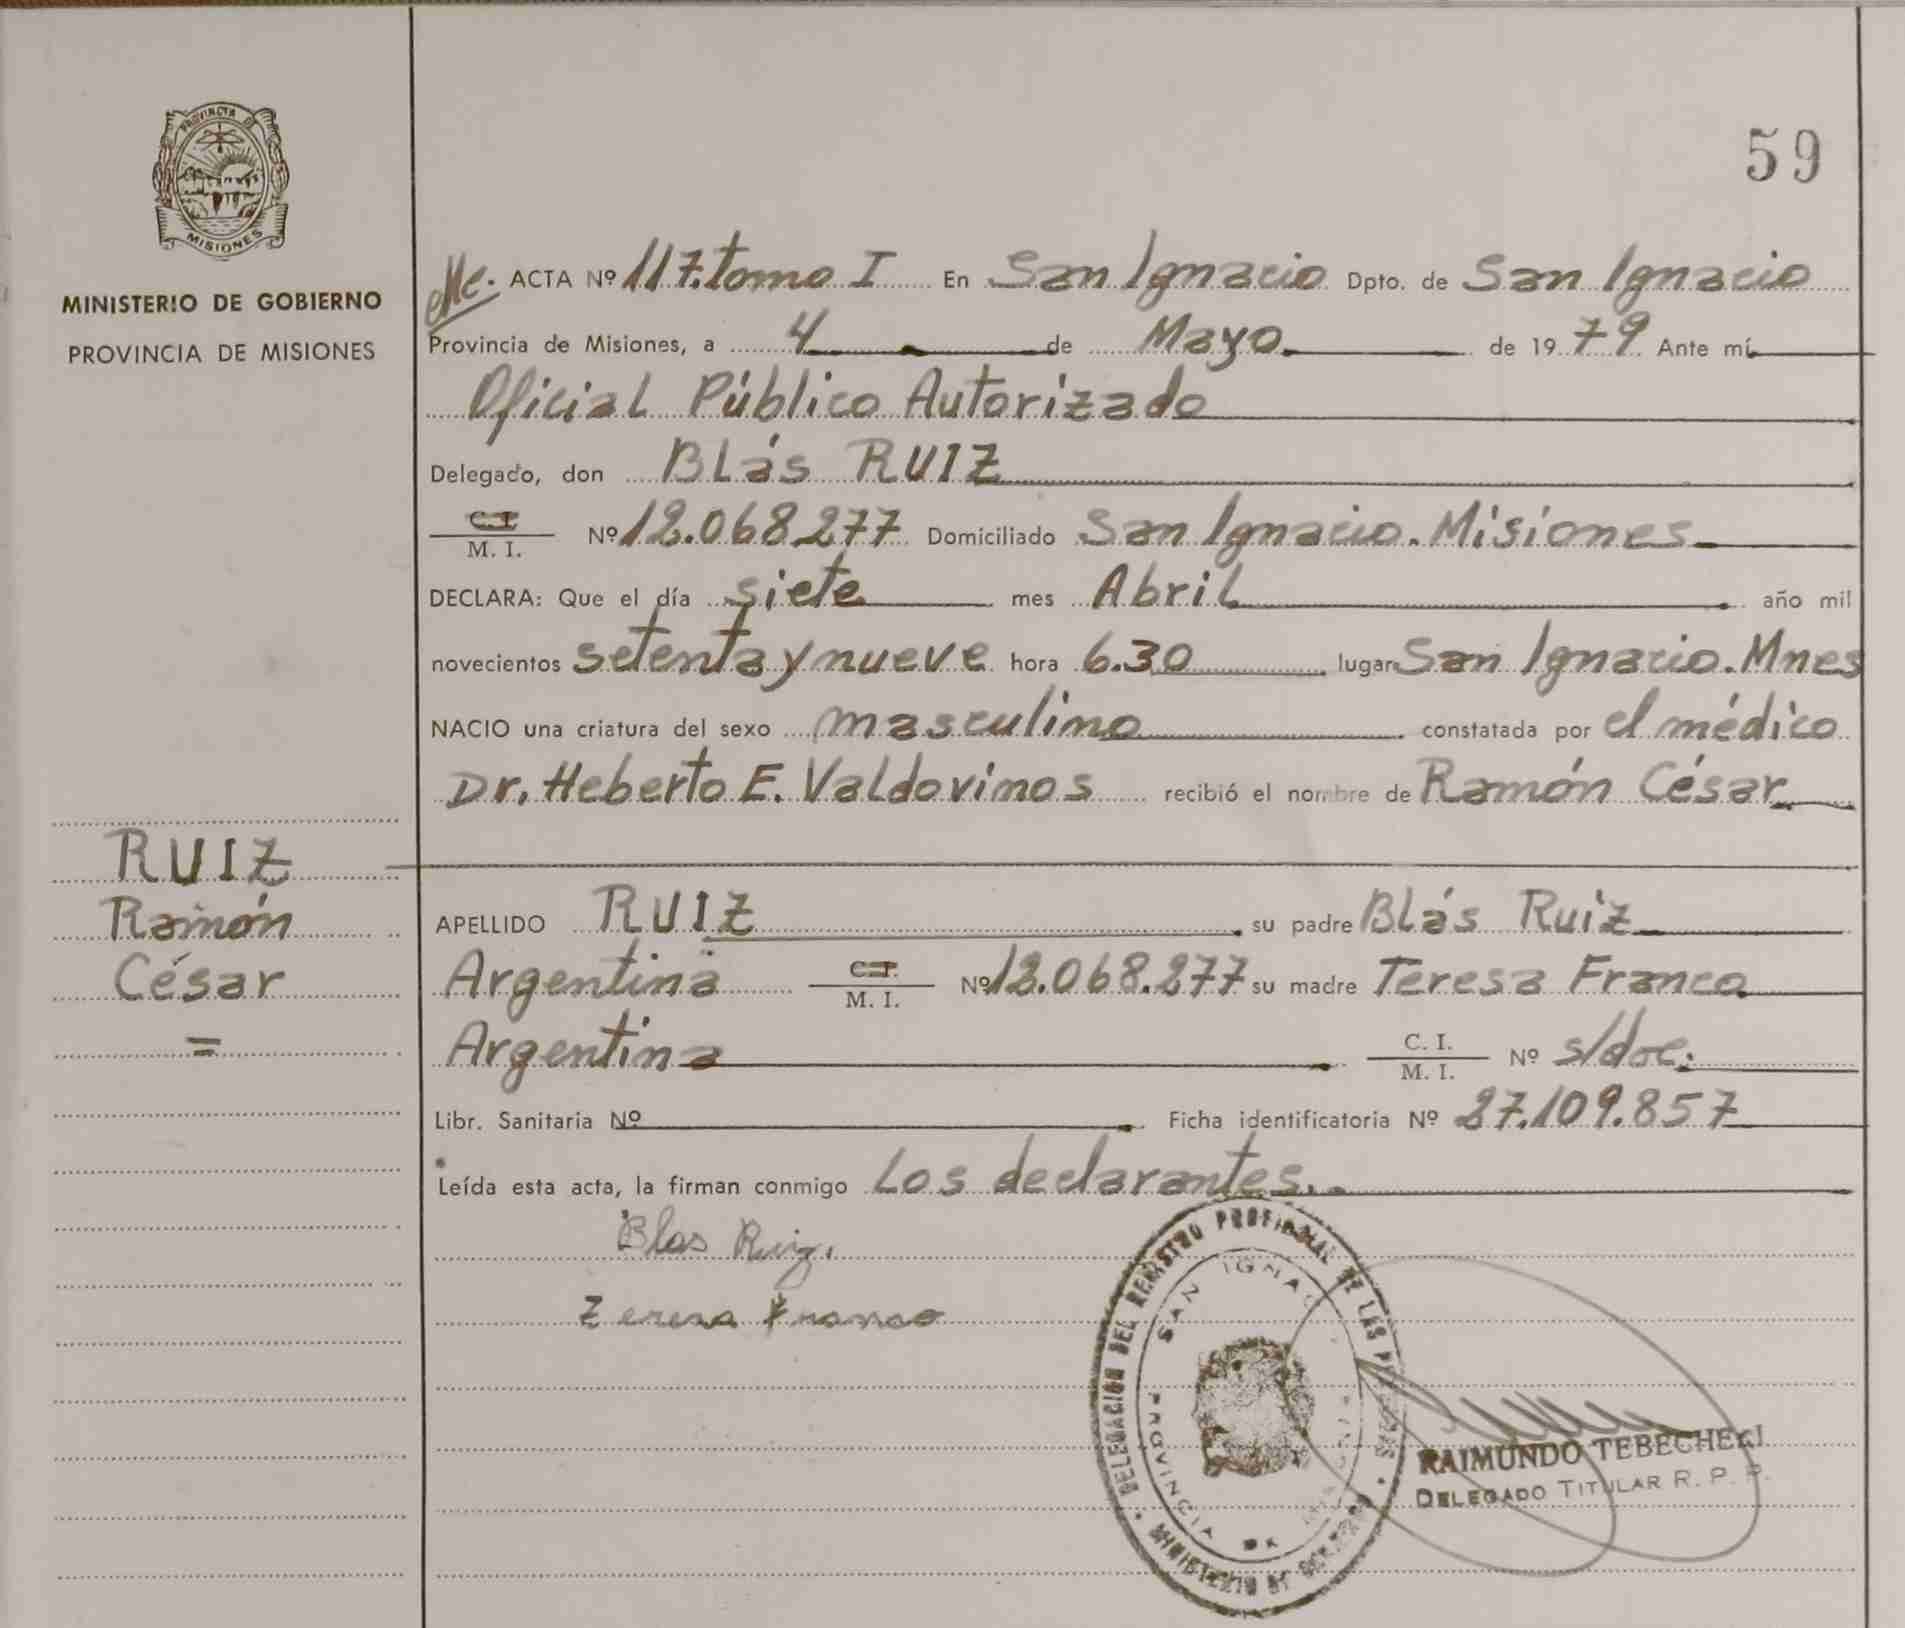 PROVINCIA DE
MISIONES
MINISTERIO DE GOBIERNO
PROVINCIA DE MISIONES
59
ACTA Nº 117. tomo I En San Ignacio Dpto. de San Ignacio
Provincia de Misiones, a 4 de Mayo de 1979 Ante mí
Oficial Público Autorizado
Delegado, don Blás RUIZ
C. I.
M. I. Nº 12.068.277 Domiciliado San Ignacio. Misiones
DECLARA: Que el día siete mes Abril año mil
novecientos setenta y nueve hora 6.30 lugar San Ignacio. Mnes
NACIO una criatura del sexo masculino constatada por el médico
Dr. Heberto E. Valdovinos recibió el nombre de Ramón César
RUIZ
Ramón
César
=
APELLIDO RUIZ su padre Blás Ruiz
Argentina C. I.
M. I. Nº 12.068.277 su madre Teresa Franco
Argentina C. I.
M. I. Nº s/doc.
Libr. Sanitaria Nº Ficha identificatoria Nº 27.109.857
Leída esta acta, la firman conmigo Los declarantes.
Blas Ruiz.
Teresa Franco
DELEGACION DEL REGISTRO PROVINCIAL DE LAS PERSONAS
MINISTERIO DE GOBIERNO
SAN IGNACIO
PROVINCIA DE MISIONES
RAIMUNDO TEBECHERI
DELEGADO TITULAR R. P. P.